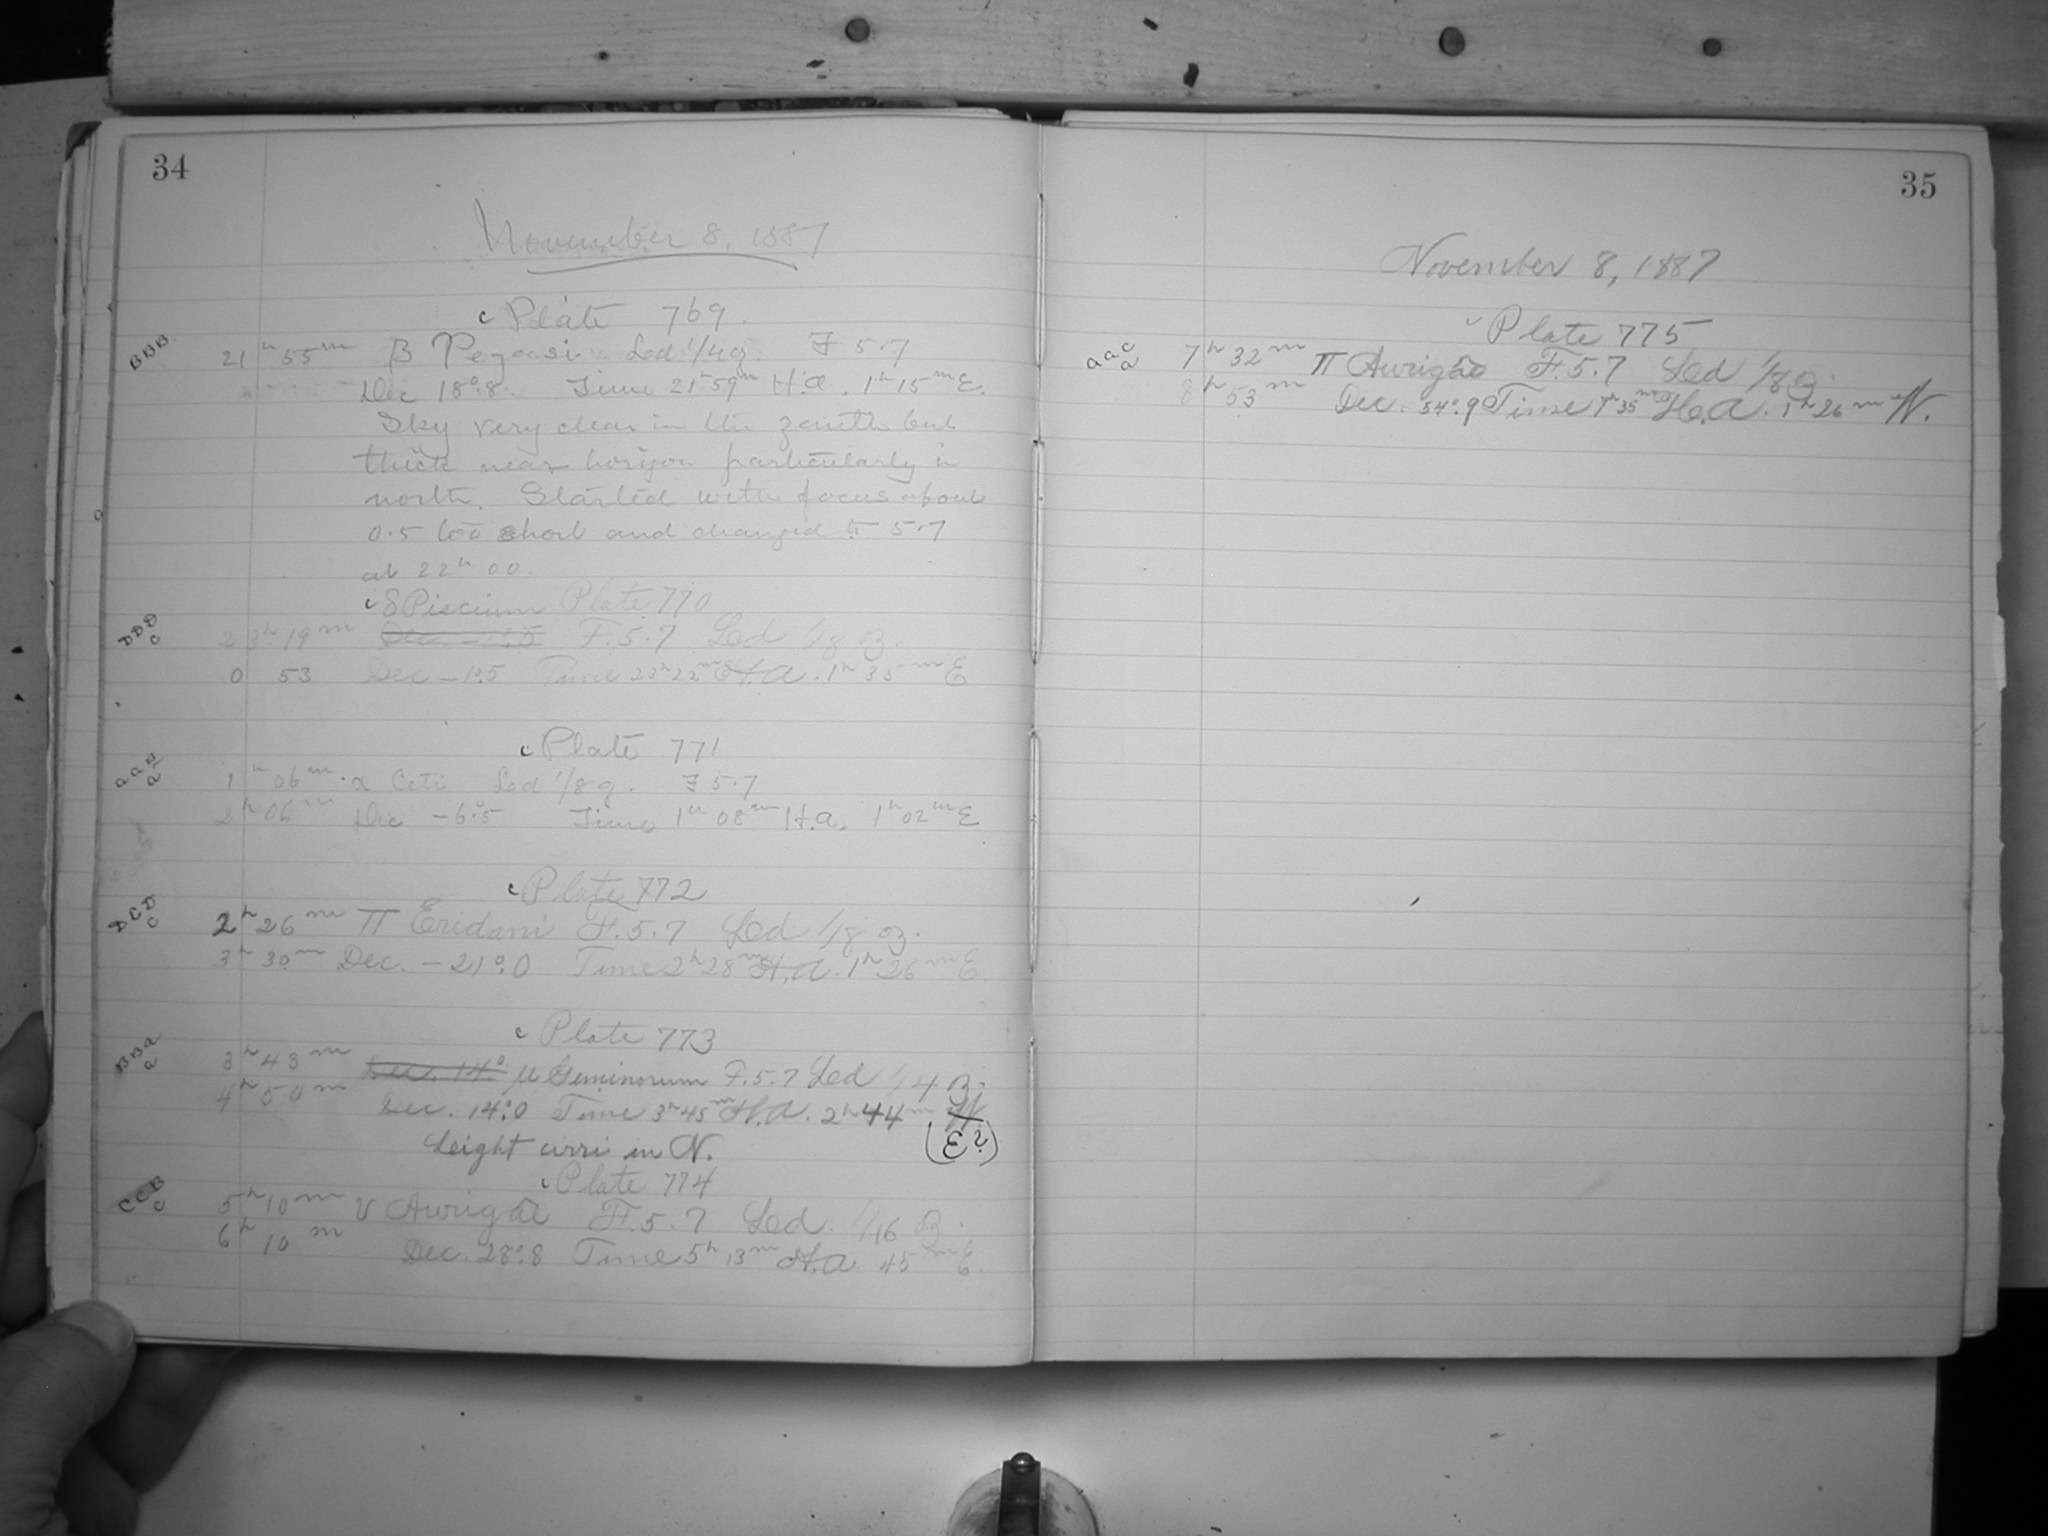 34
November 8, 1887
c Plate 769.
BBB 21h 55m β Pegasi Led 1/4 oz. F 5.7
Dec 18°.8. Time 21h 59m H.a. 1h 15m E.
Sky very clear in the zenith but
thick near horizon particularly in
north. Started with focus about
0.5 too short and changed to 5.7
at 22h 00
c δ Piscium Plate 770
DDD c 23h 19m Dec. -1°.5 F. 5.7 Led 1/8 oz.
0 53 Dec -1°.5 Time 23h 22m H.a. 1h 35m E
c Plate 771
1h 06m. α Ceti Led 1/8 oz. F 5.7
2h 06m Dec -6°.5 Time 1h 08m H.a. 1h 02m E
c Plate 772
DCD c 2h 26m π Eridani F. 5.7 Led 1/8 oz.
3h 30m Dec. -21°.0 Time 2h 28m H.a. 1h 26m E.
c Plate 773
BBa a 3h 43m Dec. 14°. μ Geminorum F. 5.7 Led 1/4 oz.
4h 50m Dec. 14°.0 Time 3h 45m H.a. 2h 44m W.
(E?)
Leight cirri in N.
c Plate 774
CCB c 5h 10m ν Aurigae F. 5.7 Led. 1/16 oz.
6h 10m Dec. 28°.8 Time 5h 13m H.a. 45m E.
35
November 8, 1887
c Plate 775
aac a 7h 32m π Aurigae F. 5.7 Led 1/8 oz.
8h 53m Dec. 54°.9 Time 7h 35m H.a. 1h 26m W.